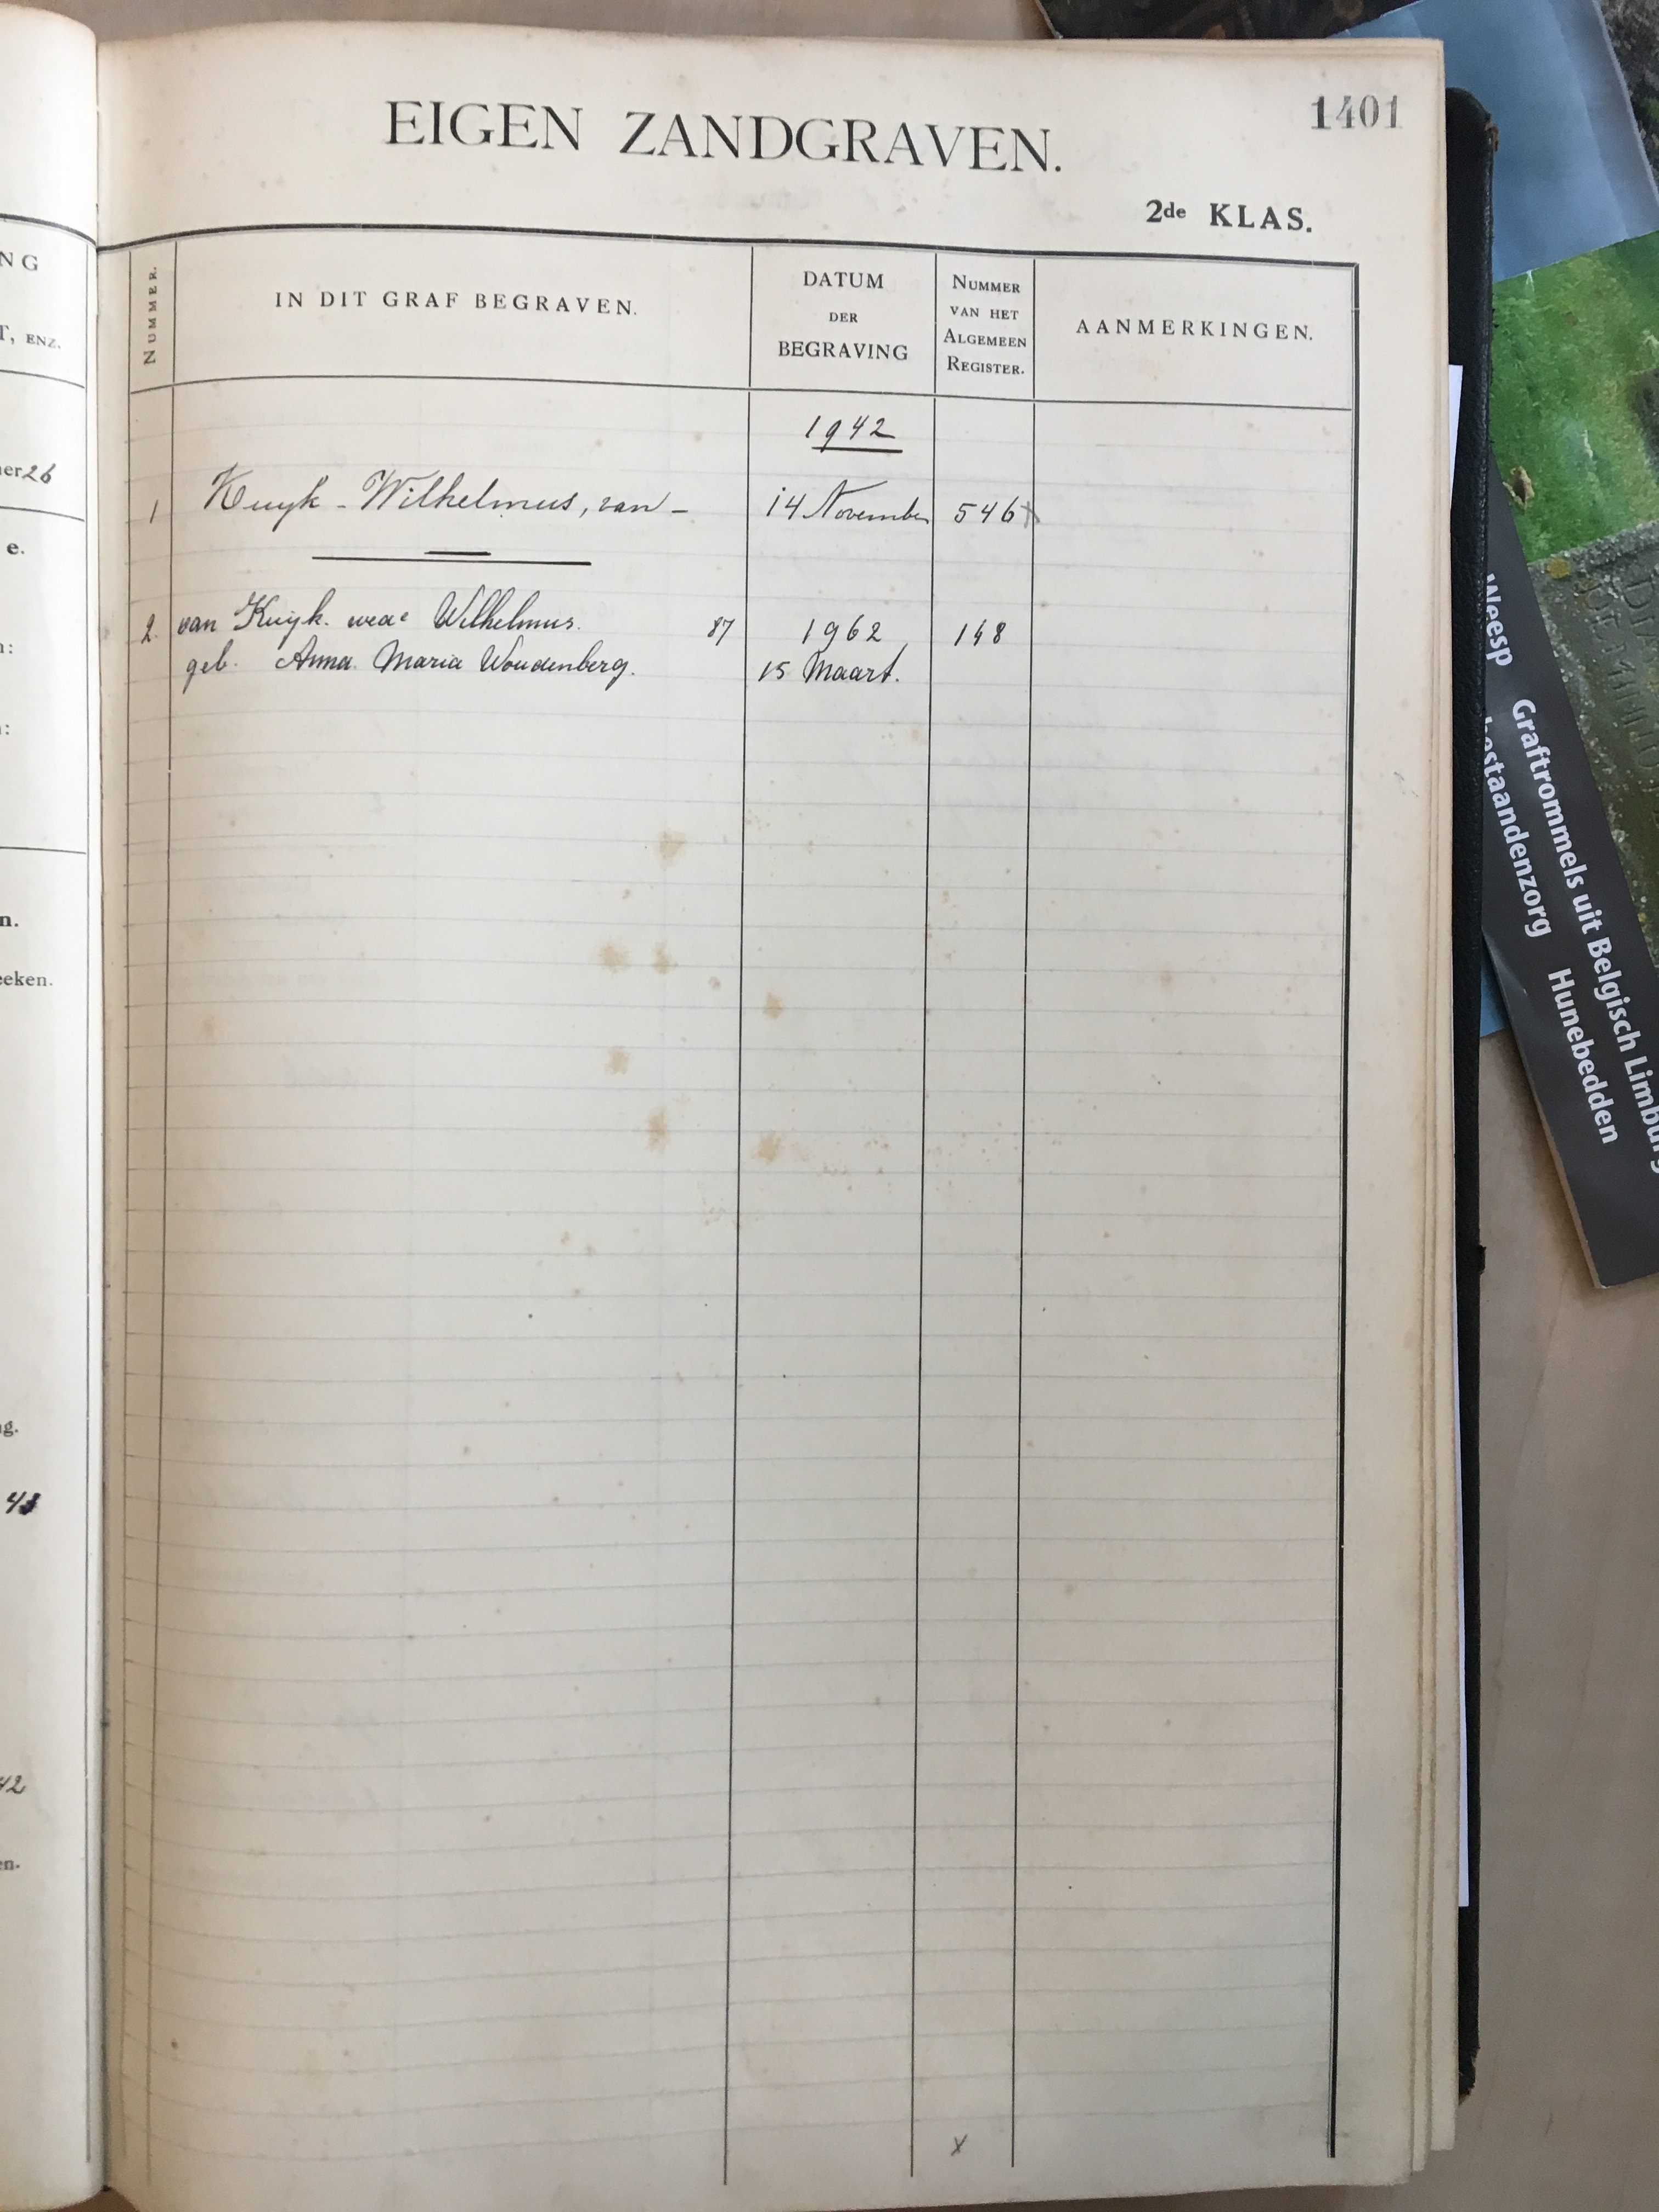 1401
EIGEN ZANDGRAVEN.
2de KLAS.
NUMMER.
IN DIT GRAF BEGRAVEN.
DATUM
DER
BEGRAVING
NUMMER
VAN HET
ALGEMEEN
REGISTER.
AANMERKINGEN.
1942
1 Kuyk - Wilhelmus, van - 14 November 546
2. van Kuyk. wede Wilhelmus. 87 1962 148
geb. Anna Maria Woudenberg. 15 Maart.
x
NG
T, ENZ.
er 26
e.
n:
n.
eeken.
g.
43
42
en.
Weesp Graftrommels uit Belgisch Limburg
bestaandenzorg Hunebedden